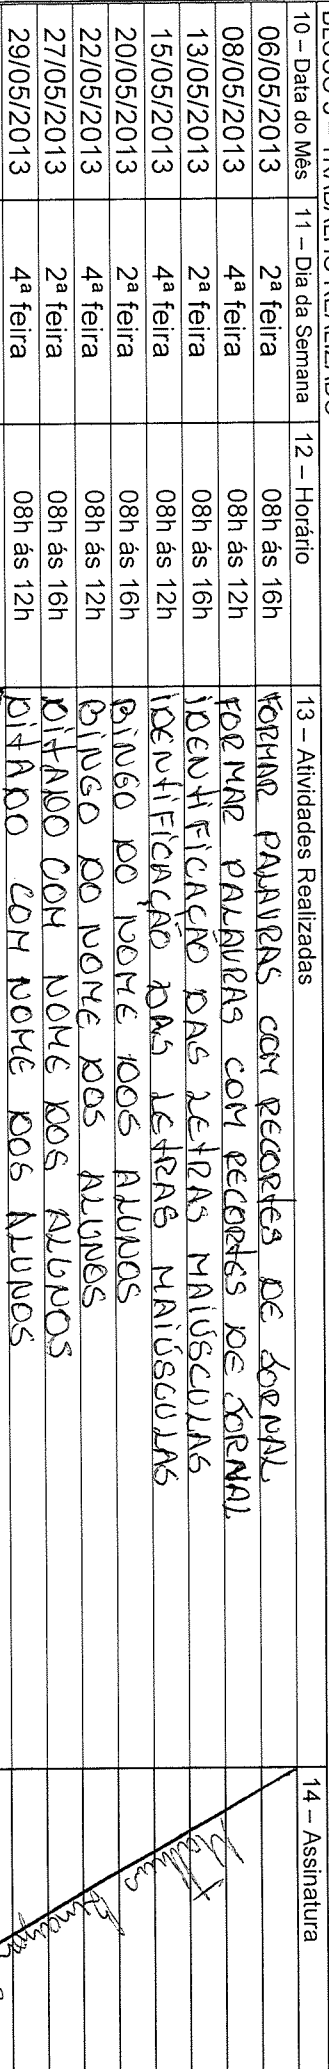 BLOCO 3 – TRABALHO REALIZADO
10 – Data do Mês 11 – Dia da Semana 12 – Horário 13 – Atividades Realizadas 14 – Assinatura
06/05/2013 2ª feira 08h ás 16h FORMAR PALAVRAS COM RECORTES DE JORNAL
08/05/2013 4ª feira 08h ás 12h FORMAR PALAVRAS COM RECORTES DE JORNAL
13/05/2013 2ª feira 08h ás 16h IDENTIFICAÇÃO DAS LETRAS MAIÚSCULAS
15/05/2013 4ª feira 08h ás 12h IDENTIFICAÇÃO DAS LETRAS MAIÚSCULAS
20/05/2013 2ª feira 08h ás 16h BINGO DO NOME DOS ALUNOS
22/05/2013 4ª feira 08h ás 12h BINGO DO NOME DOS ALUNOS
27/05/2013 2ª feira 08h ás 16h DITADO COM NOME DOS ALUNOS
29/05/2013 4ª feira 08h ás 12h DITADO COM NOME DOS ALUNOS